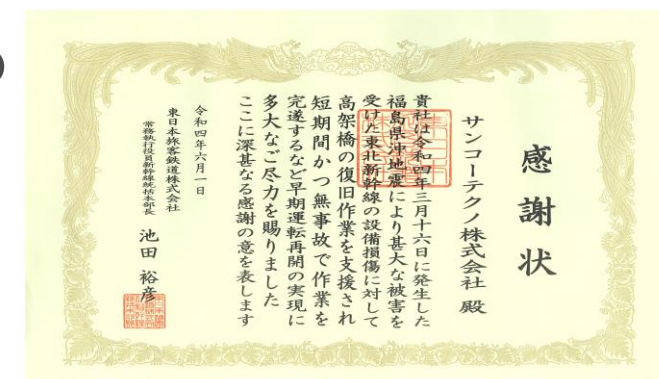 感謝状
サンコーテクノ株式会社 殿
貴社は令和四年三月十六日に発生した
福島県沖地震により甚大な被害を
受けた東北新幹線の設備損傷に対して
高架橋の復旧作業を支援され
短期間かつ無事故で作業を
完遂するなど早期運転再開の実現に
多大なご尽力を賜りました
ここに深甚なる感謝の意を表します
令和四年六月一日
東日本旅客鉄道株式会社
常務執行役員新幹線統括本部長
池田 裕彦